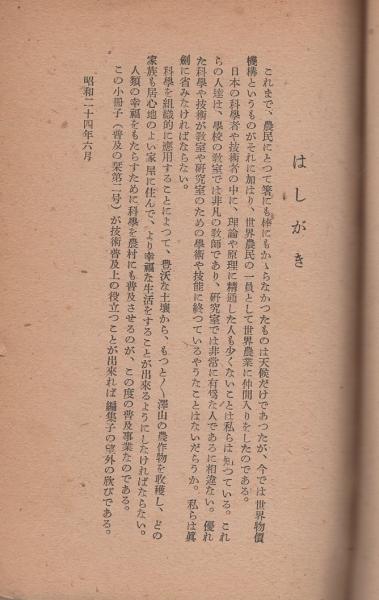 はしがき
これまで、農民にとつて箸にも棒にもかゝらなかつたものは天候だけであつたが、今では世界物價
機構というものがそれに加はり、世界農民の一員として世界農業に仲間入りをしたのである。
日本の科學者や技術者の中に、理論や原理に精通した人も少くないことは私らは知つている。これ
らの人達は、學校の教室では非凡の教師であり、研究室では非常に有為な人であるに相違ない。優れ
た科學や技術が教室や研究室のための學術や技能に終つているやうなことはないだらうか。私らは眞
劍に省みなければならない。
科學を組織的に應用することによつて、豊沃な土壤から、もつと〳〵澤山の農作物を收穫し、どの
家族も居心地のよい家屋に住んで、より幸福な生活をすることが出來るようにしなければならない。
人類の幸福をもたらすために科學を農村にも普及させるのが、この度の普及事業なのである。
この小冊子（普及の栞第二号）が技術普及上の役立つことが出來れば編集子の望外の欣びである。
昭和二十四年六月